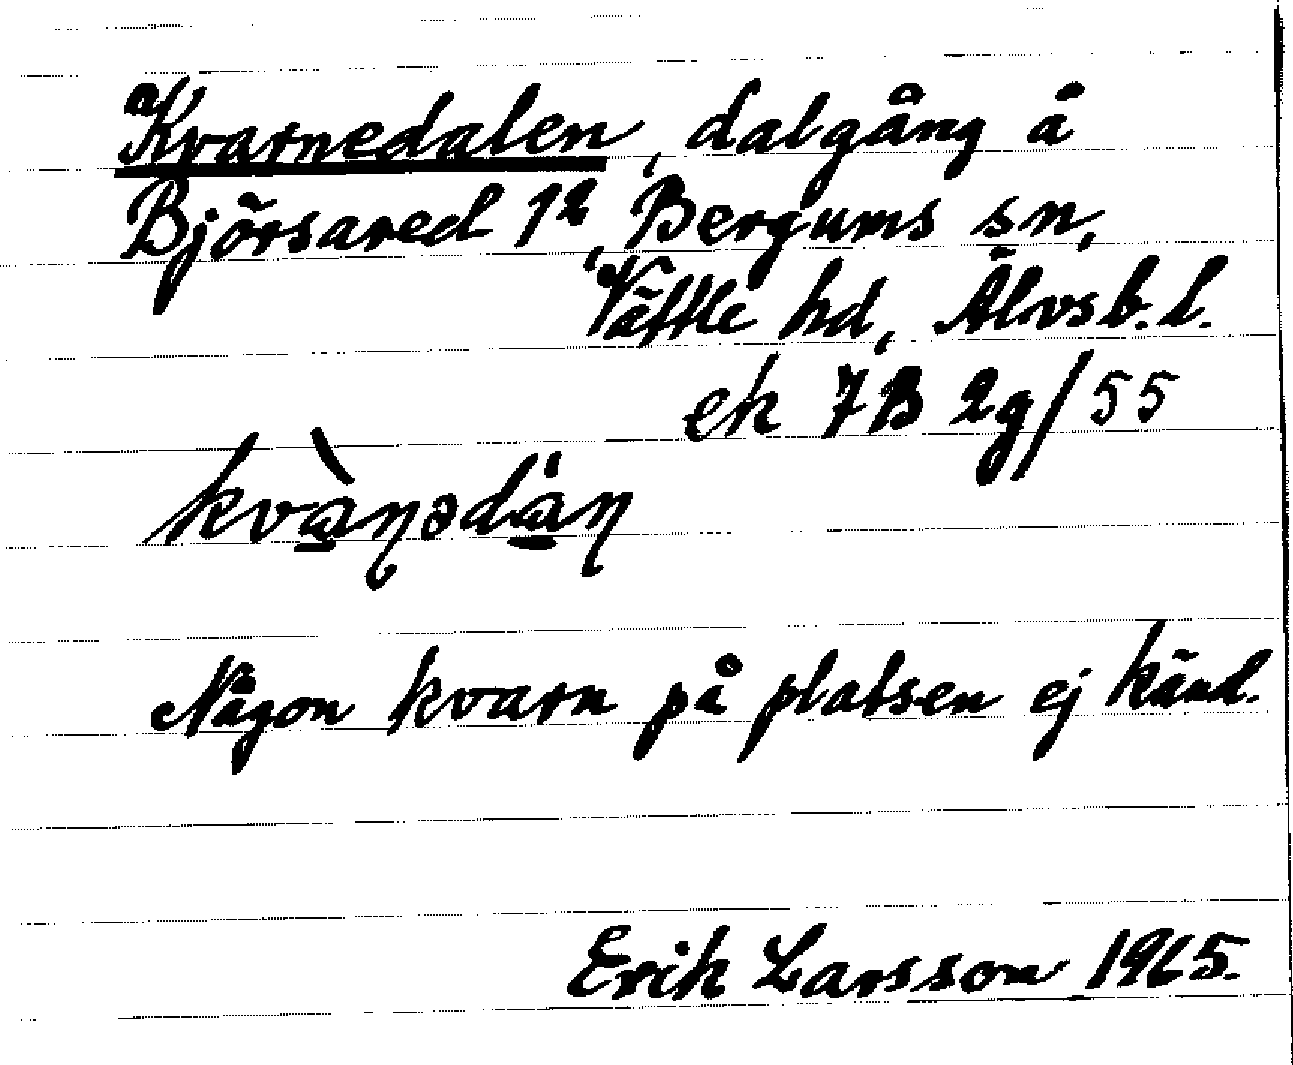 Kvarnedalen, dalgång å
Björsared 1², Bergums sn,
Vättle hd, Älvsb. l.
ek 7B 2g/55
kvàṇədáṇ
Någon kvarn på platsen ej känd.
Erik Larsson 1965.